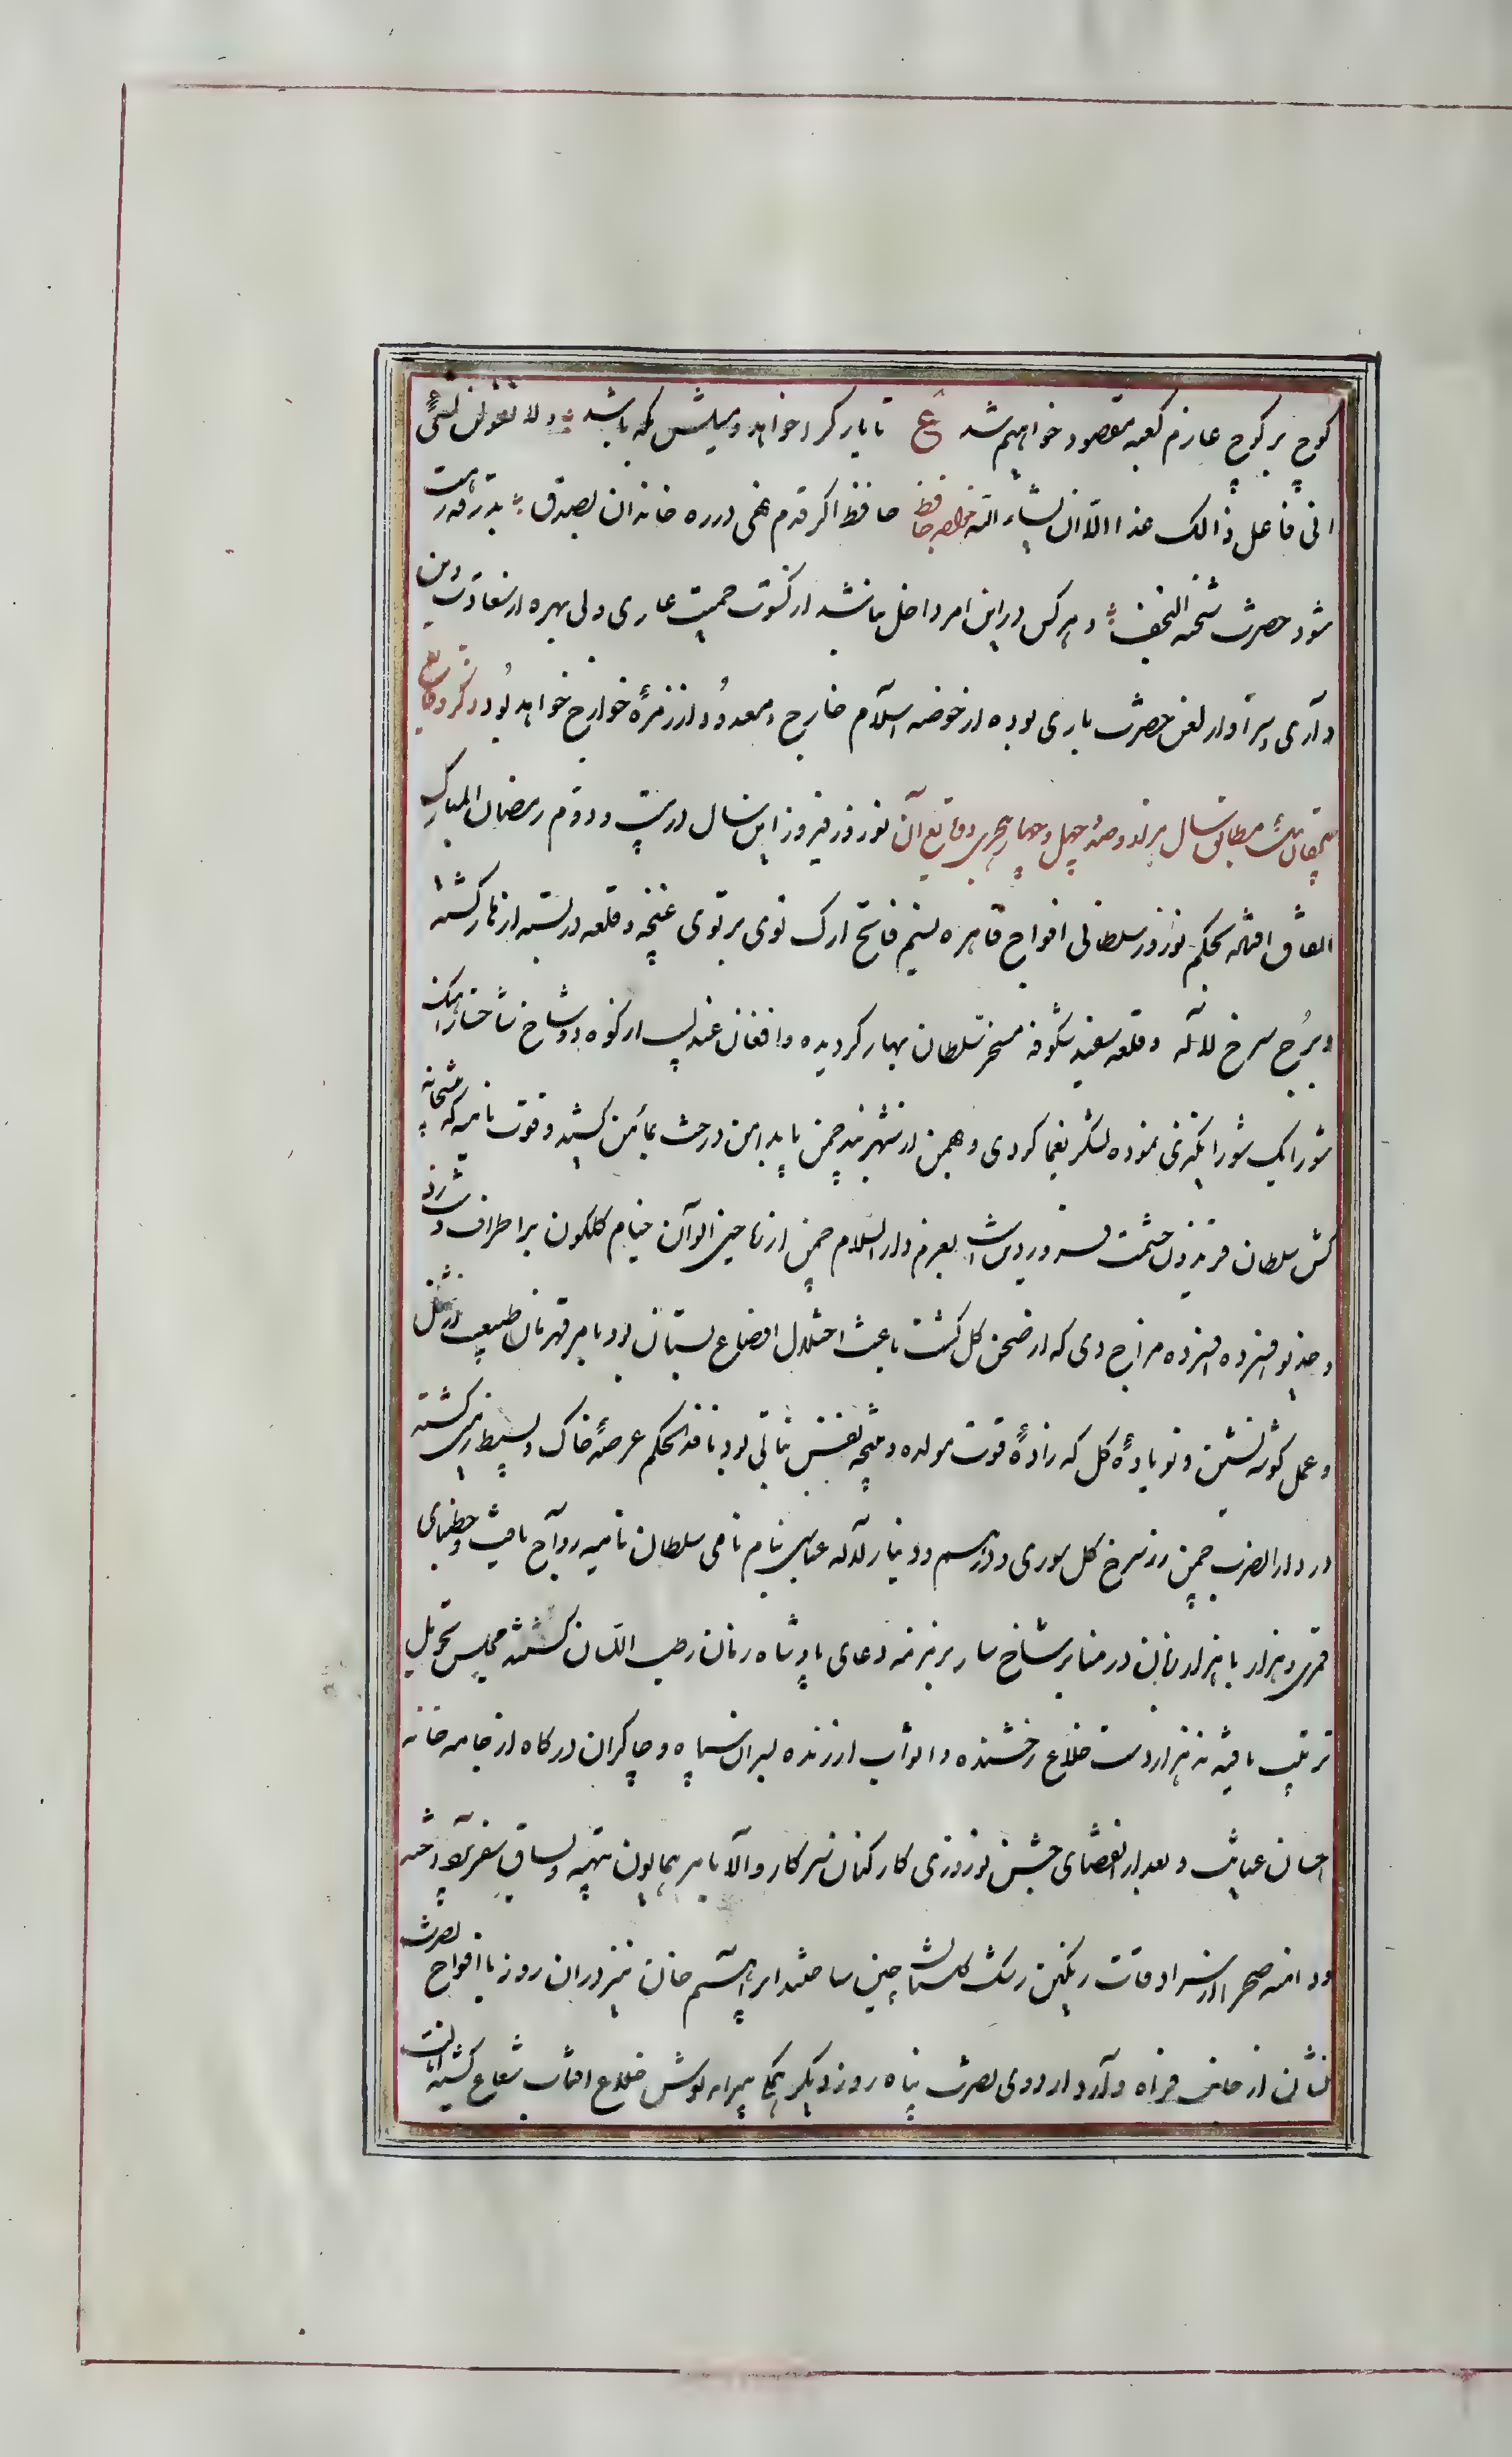 کوچ بر کوچ عازم کعبه مقصود خواهیم شد ع تا یار کرا خواهد و میلش بکه باشد و لا تقولن لشیء
انی فاعل ذالک غدا الا ان یشاء الله خواجه حافظ حافظ اگر قدم نهی در ره خاندان بصدق بدرقه رهت
شود حضرت شحنه النجف و هر کس در این امر داخل نباشد از کسوت حمیت عاری و بی بهره از سعادت دین
داری و سزاوار لعن حضرت باری بوده از حوضه اسلام خارج و معدود از زمرهٔ خوارج خواهد بود ذکر وقایع
مطابق سال هزار و صد و چهل و چهار هجری وقایع آن نوروز فیروز این سال در بیست و دوم رمضان المبارک
اتفاق افتاده بحکم نوروز سلطانی افواج قاهره نسیم فاتح ارک توی بر توی غنچه و قلعه دربسته ازهار گشته
و برج سرخ لاله و قلعه سفید شکوفه مسخر سلطان بهار گردیده و افغان عندلیب از کوه دوشاخ شاخسار آهنک
شورانک شورانگیزی نموده لشکر یغما گر دی و بهمن از شهربند چمن پا بدامن درخت بمأمن کشید و قوت نامیه که پیشخانه
کش سلطان فریدون حشمت فروردین است بعزم دارالسلام چمن از ریاحین الوان خیام گلگون بر اطراف دشت زد
و خدیو افسرده مزاج دی که از صحن گلگشت باعث اختلال اوضاع بستان بود بامر قهرمان طبیعت در شغل
و عمل گوشه نشین و نوبادهٔ گل که زادهٔ قوت مولده و نتیجه نفس نباتی بود نافذ الحکم عرصهٔ خاک و بسیط زمین گشته
در دارالضرب چمن زر سرخ گل سوری و درهم و دینار لاله عباسی بنام نامی سلطان نامیه رواج یافت و خطبهای
قمری و هزار با هزار زبان در منابر شاخسار بزمزمه دعای پادشاه زمان رطب اللسان گشتند مجلس تحویل
ترتیب یافته نه هزار دست خلاع رخشنده و اثواب ارزنده بسران سپاه و چاکران درگاه از جامه خانه
احسان عنایت و بعد از انقضای جشن نوروزی کارکنان سرکار والا بامر همایون بتهیه و یساق سفر پرداخته
و دامنه صحرا از سرادقات رنگین رشک گلستان چین ساختند ابراهیم خان نیز در آن روز با افواج نصرت
نشان از جانب فراه وارد اردوی نصرت پناه روز دیگر همگی سرابر پوش خلاع آفتاب شعاع گشته